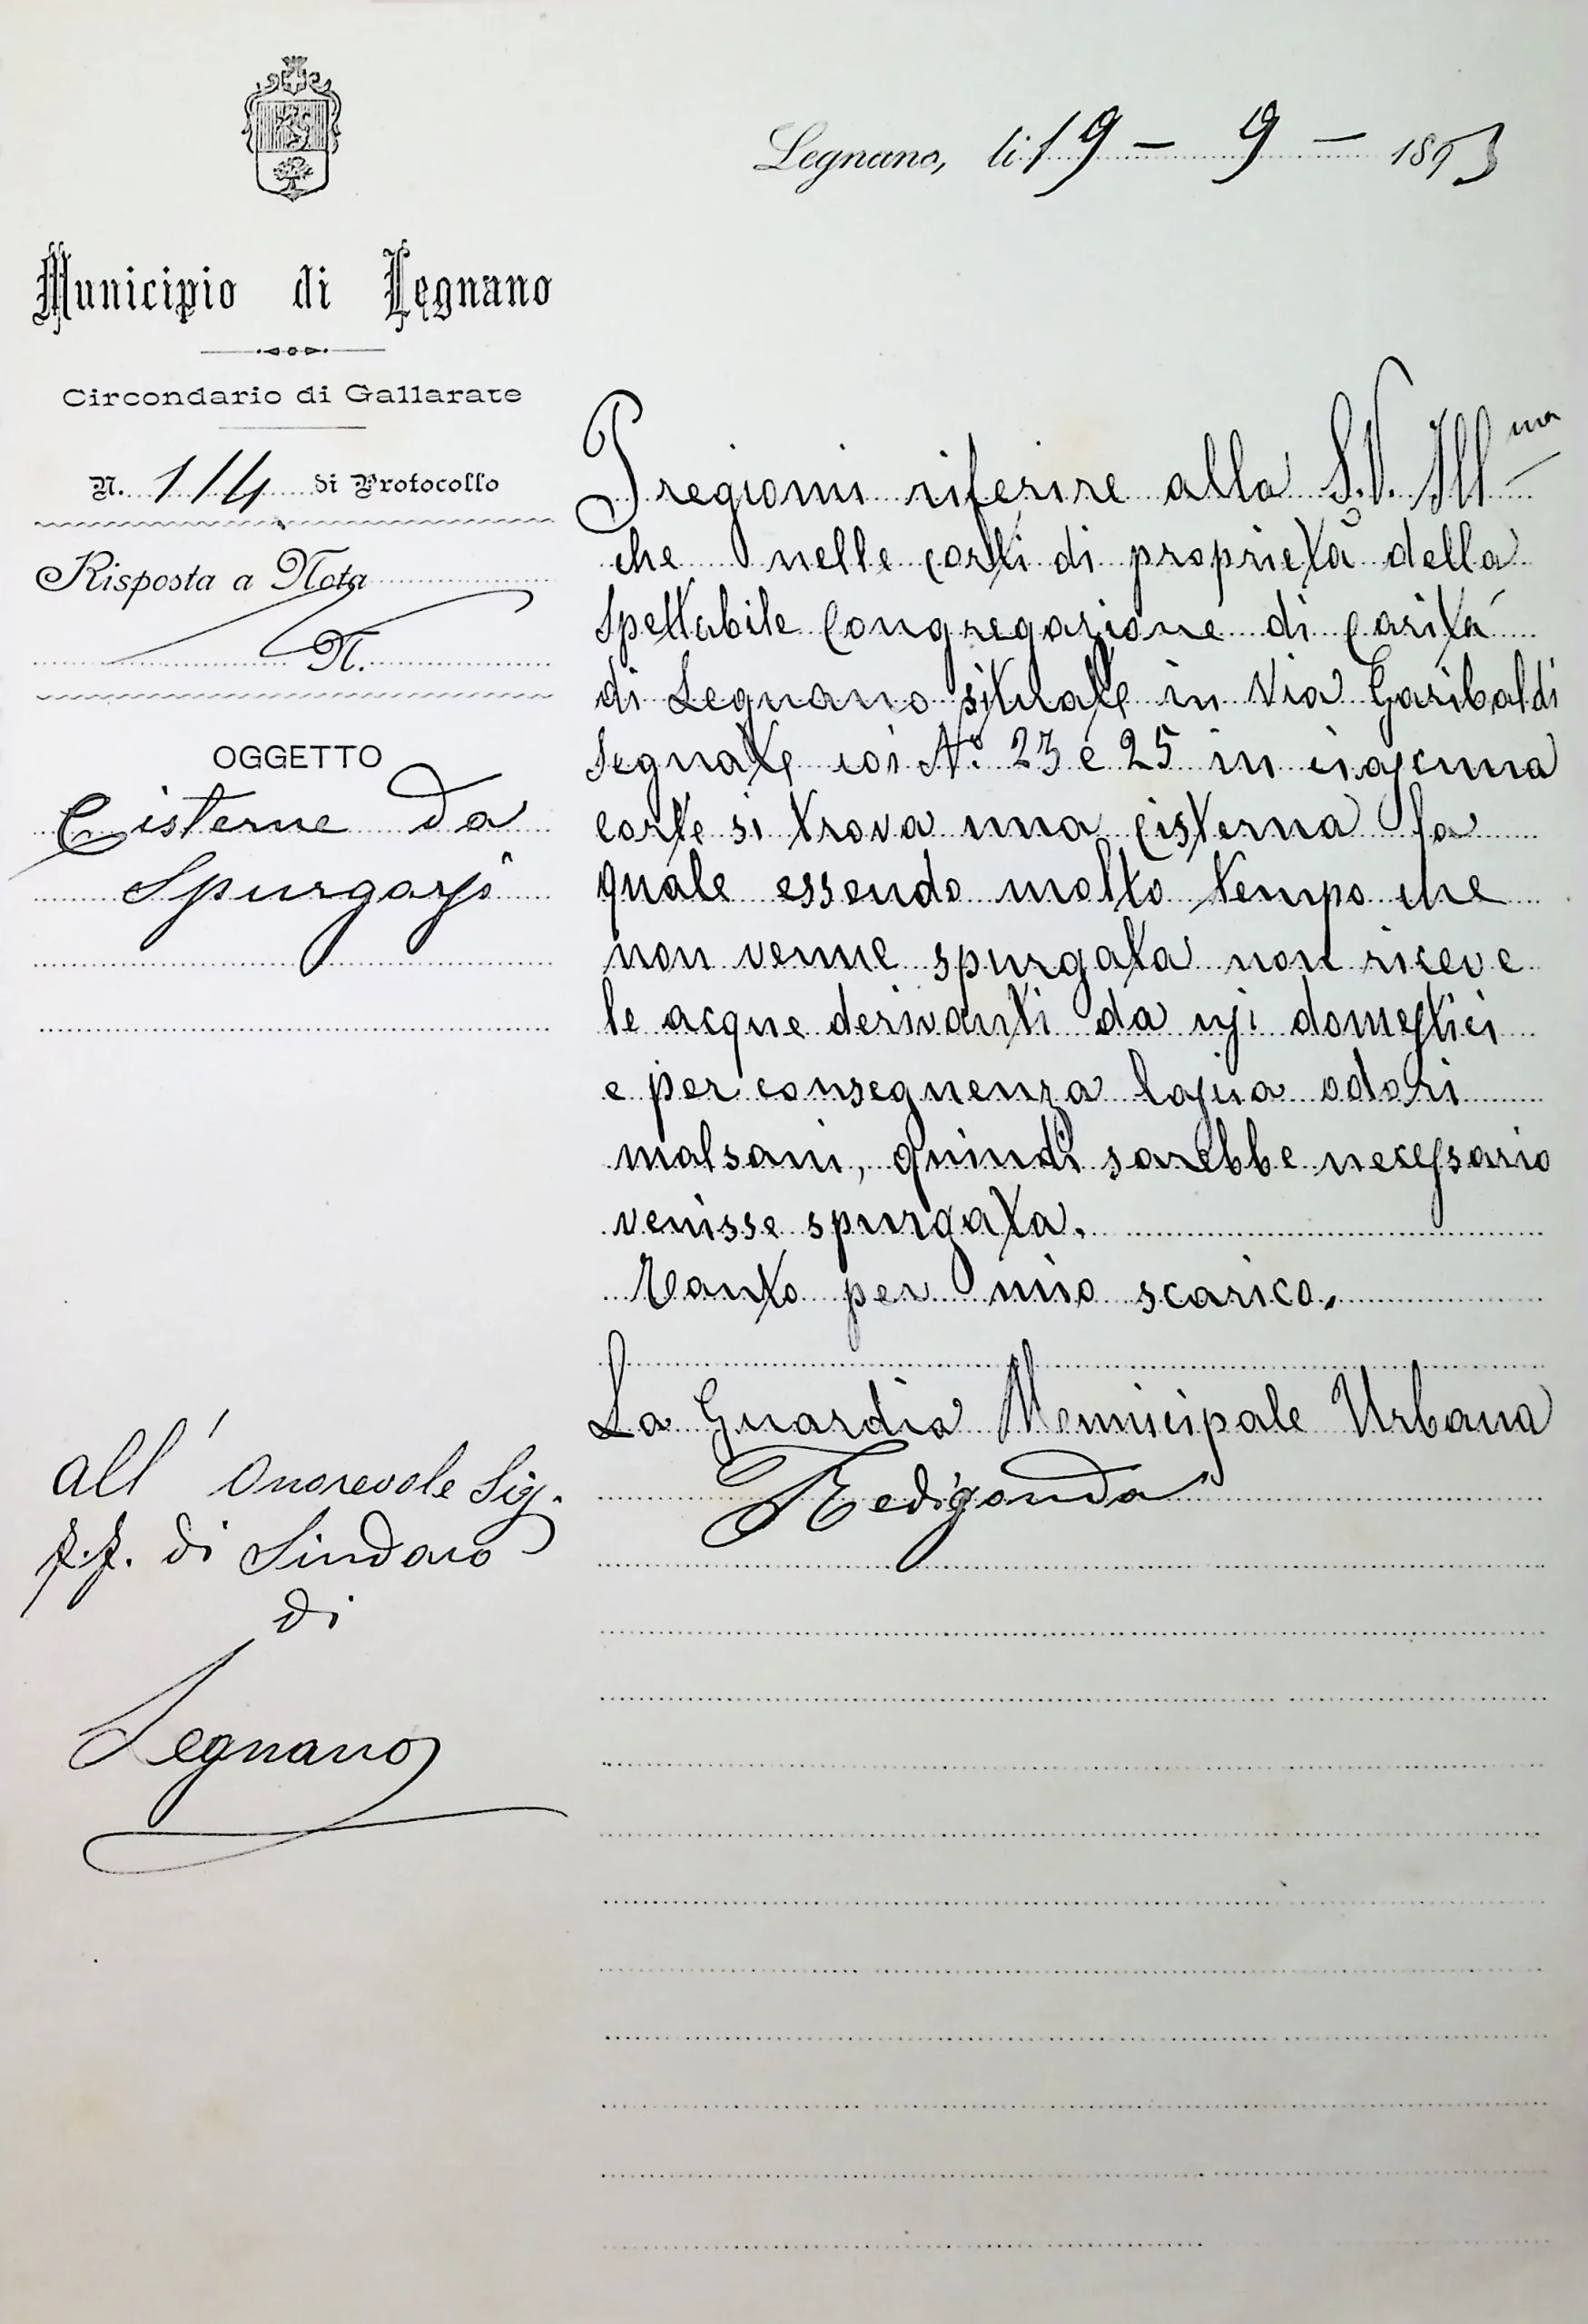 Legnano, li 19 - 9 - 1893
Municipio di Legnano
Circondario di Gallarate
N. 114 di Protocollo
Risposta a Nota
N.
OGGETTO
Cisterne da
Spurgarsi
Pregiomi riferire alla S.V. Ill^ma
che nelle corti di proprietà della
Spettabile Congregazione di Carità
di Legnano situate in Via Garibaldi
Segnate coi N.° 23 e 25 in ciascuna
corte si trova una cisterna la
quale essendo molto tempo che
non venne spurgata non riceve
le acque derivanti da usi domestici
e per conseguenza lascia odori
malsani, quindi sarebbe necessario
venisse spurgata.
Tanto per mio scarico.
La Guardia Municipale Urbana
Redigonda
all' Onorevole Sig.
f.f. di Sindaco
di
Legnano